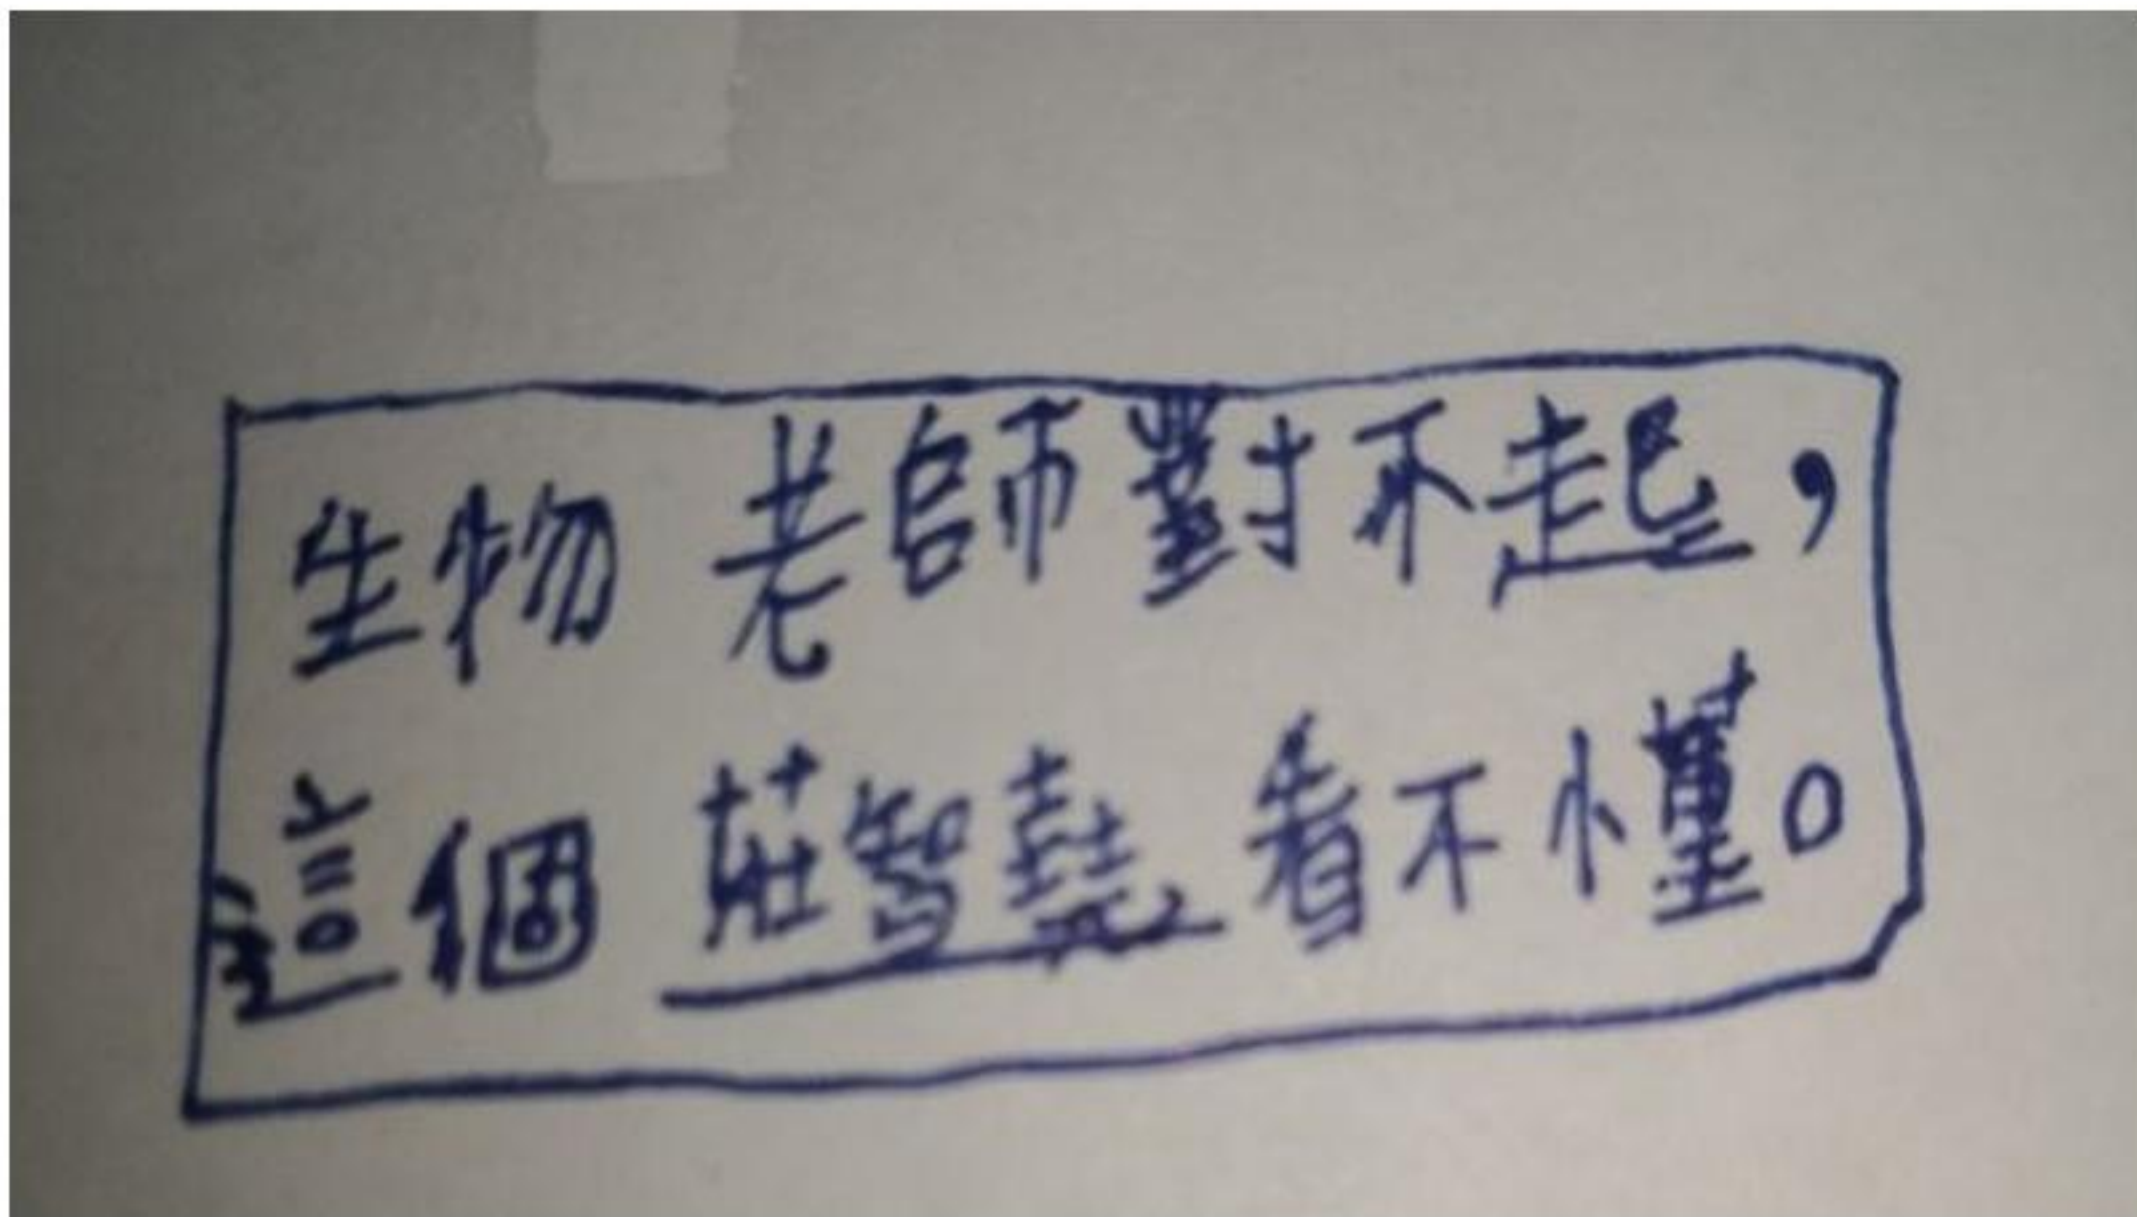 生物 老師對不起，
這個 莊智 看不懂。